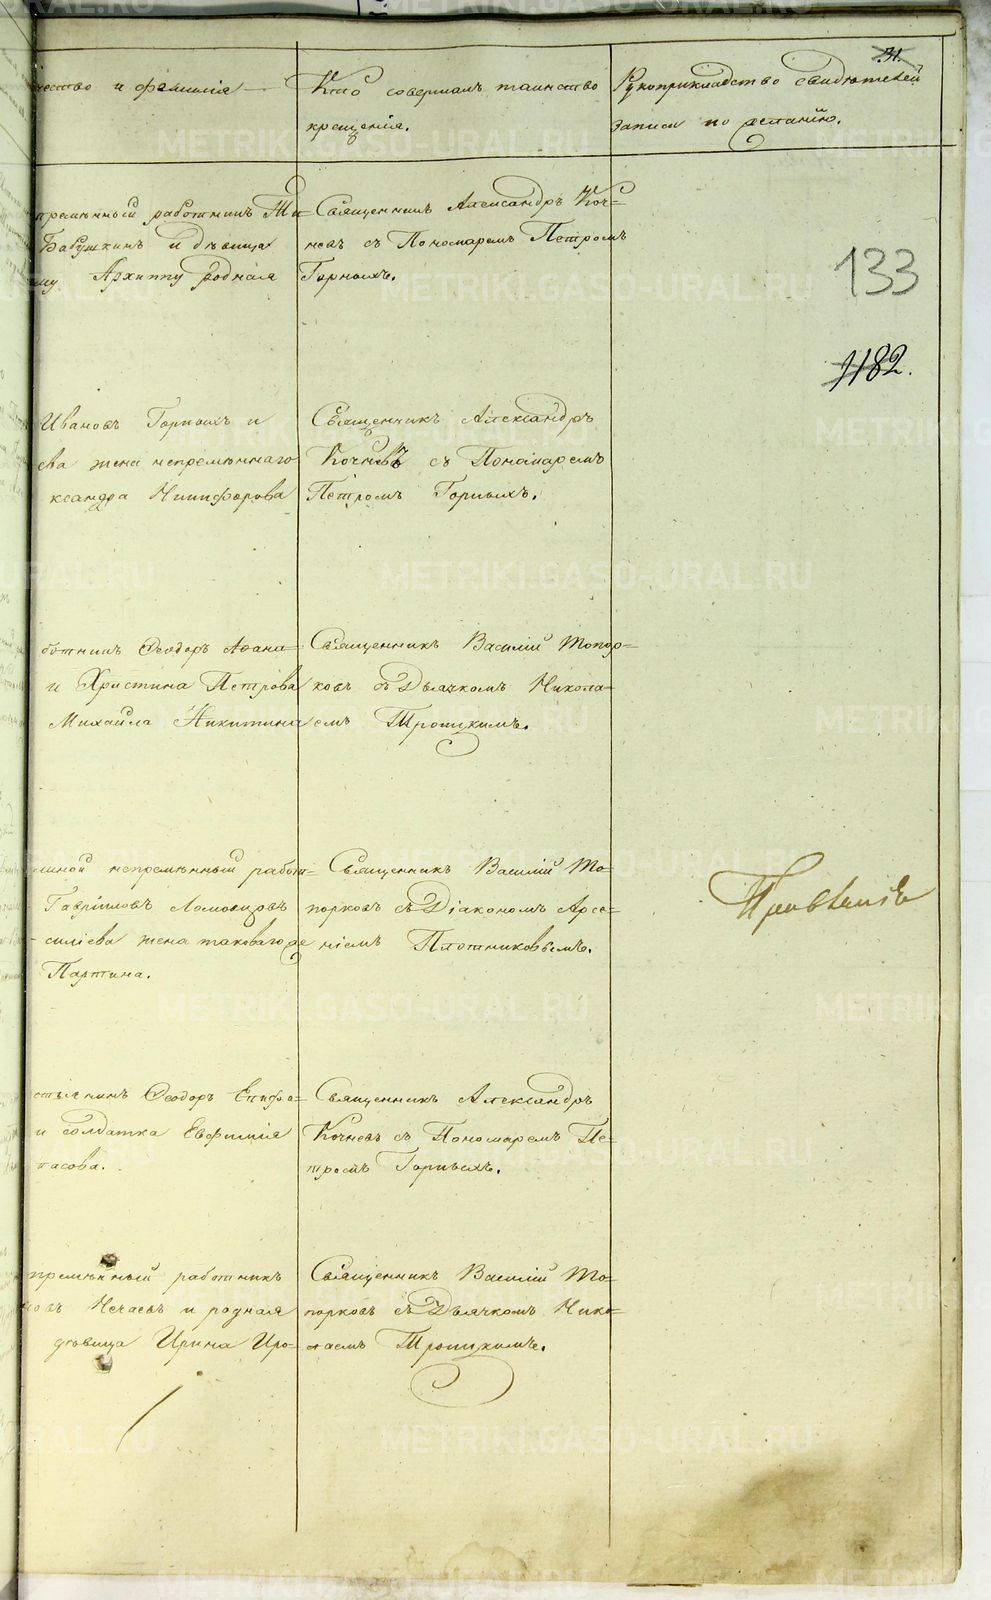 31.
чество и фамилія
Кто совершалъ таинство
крещенія.
Рукоприкладство свидѣтелей
записи по желанію.
133
1182.
премѣнный работникъ Ти-
Бабушкинъ и дѣвица
му Архиппу родная
Священникъ Александръ Коч-
невъ съ Пономаремъ Петромъ
Горныхъ.
Ивановъ Горныхъ и
ева жена непремѣннаго
ксандра Никифорова
Священникъ Александръ
Кочневъ съ Пономаремъ
Петромъ Горныхъ.
ботникъ Ѳеодоръ Аѳана-
и Христина Петрова
Михаила Никитина
Священникъ Василій Топор-
ковъ съ Дьячкомъ Никола-
емъ Троицкимъ.
непремѣнный работ-
Гавриловъ Ломовцовъ
силіева жена таковаго же
Партина.
Священникъ Василій То-
порковъ съ Діакономъ Арсе-
ніемъ Плотниковымъ.
стьянинъ Ѳеодоръ Епифа-
и солдатка Евфимія
пасова.
Священникъ Александръ
Кочневъ съ Пономаремъ Пе-
тромъ Горныхъ.
премѣнный работникъ
новъ Нечаевъ и родная
дѣвица Ирина Иро-
Священникъ Василій То-
порковъ съ Дьячкомъ Нико-
лаемъ Троицкимъ.
METRIKI.GASO-URAL.RU